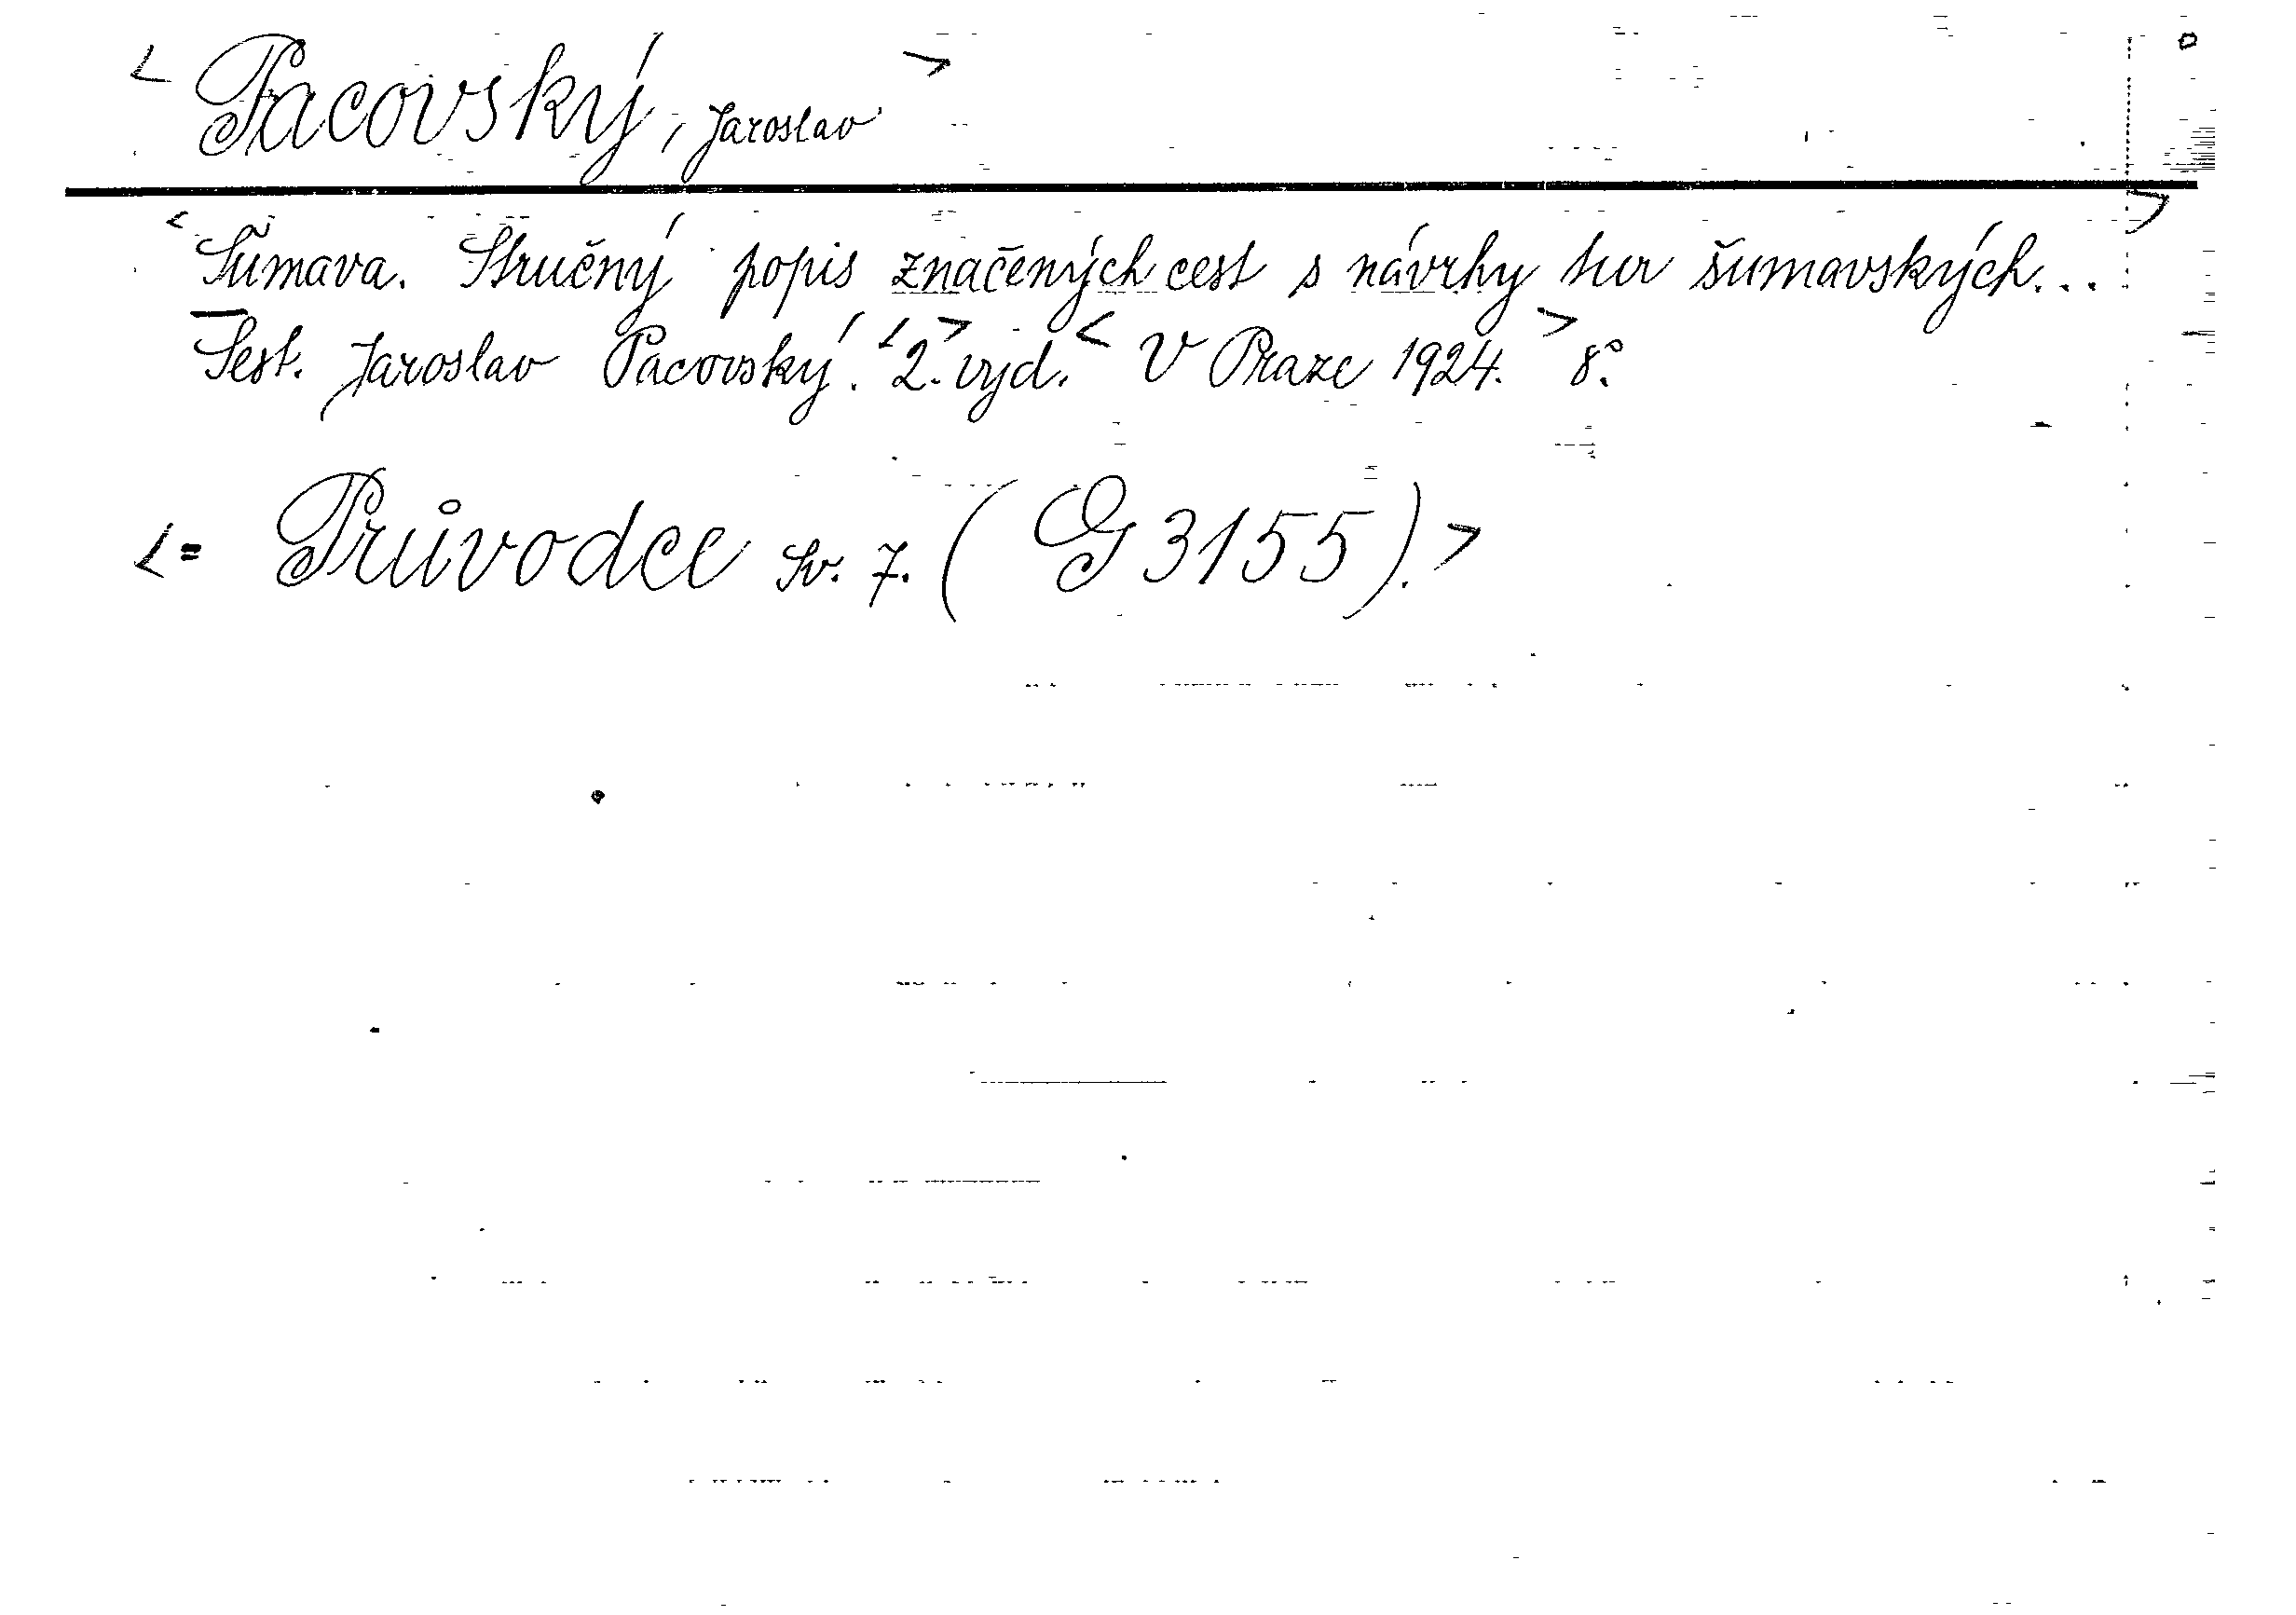 < Pacovský, Jaroslav >
< Šumava. Stručný popis značených cest s návrhy tur šumavských... >
Sest. Jaroslav Pacovský. < 2. > vyd. < V Praze 1924. > 8°.
< = Průvodce sv. 7. ( G 3155 ). >